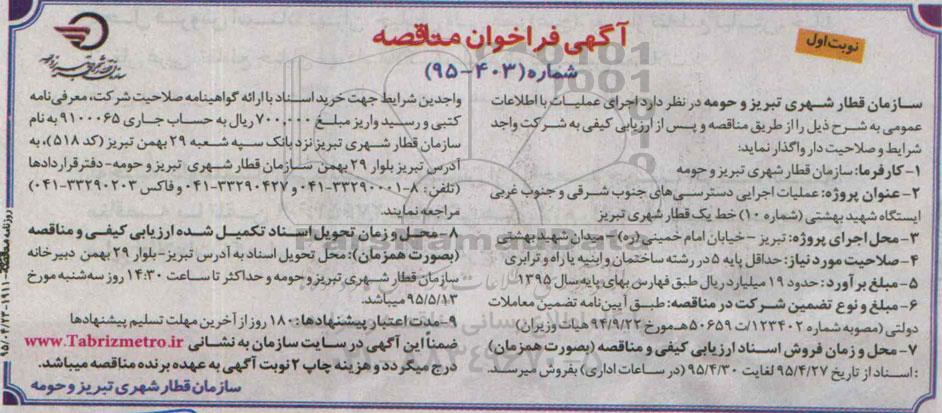 نوبت اول
آگهی فراخوان مناقصه
شماره (۴۰۳-۹۵)
سازمان قطار شهری تبریز و حومه
سازمان قطار شهری تبریز و حومه در نظر دارد اجرای عملیات با اطلاعات
عمومی به شرح ذیل را از طریق مناقصه و پس از ارزیابی کیفی به شرکت واجد
شرایط و صلاحیت دار واگذار نماید:
۱-کارفرما: سازمان قطار شهری تبریز و حومه
۲-عنوان پروژه: عملیات اجرایی دسترسی های جنوب شرقی و جنوب غربی
ایستگاه شهید بهشتی (شماره ۱۰) خط یک قطار شهری تبریز
۳-محل اجرای پروژه: تبریز - خیابان امام خمینی (ره) - میدان شهید بهشتی
۴-صلاحیت مورد نیاز: حداقل پایه ۵ در رشته ساختمان و ابنیه یا راه و ترابری
۵-مبلغ برآورد: حدود ۱۹ میلیارد ریال طبق فهارس بهای پایه سال ۱۳۹۵
۶-مبلغ و نوع تضمین شرکت در مناقصه: طبق آیین نامه تضمین معاملات
دولتی (مصوبه شماره ۱۲۳۴۰۲/ت ۵۰۶۵۹ هـ مورخ ۹۴/۹/۲۲ هیات وزیران)
۷-محل و زمان فروش اسناد ارزیابی کیفی و مناقصه (بصورت همزمان)
: اسناد از تاریخ ۹۵/۴/۲۷ لغایت ۹۵/۴/۳۰ (در ساعات اداری) بفروش میرسد
واجدین شرایط جهت خرید اسناد با ارائه گواهینامه صلاحیت شرکت، معرفی نامه
کتبی و رسید واریز مبلغ ۷۰۰,۰۰۰ ریال به حساب جاری ۹۱۰۰۰۶۵ به نام
سازمان قطار شهری تبریز نزد بانک سپه شعبه ۲۹ بهمن تبریز (کد ۵۱۸)، به
آدرس تبریز بلوار ۲۹ بهمن سازمان قطار شهری تبریز و حومه-دفتر قراردادها
(تلفن: ۸-۳۳۲۹۰۰۰۱-۰۴۱ و ۳۳۲۹۰۴۲۷-۰۴۱ و فاکس ۳۳۲۹۰۲۰۳-۰۴۱)
مراجعه نمایند.
۸-محل و زمان تحویل اسناد تکمیل شده ارزیابی کیفی و مناقصه
(بصورت همزمان): محل تحویل اسناد به آدرس تبریز-بلوار ۲۹ بهمن دبیرخانه
سازمان قطار شهری تبریز و حومه و حداکثر تا ساعت ۱۴:۳۰ روز سه شنبه مورخ
۹۵/۵/۱۳ میباشد.
۹-مدت اعتبار پیشنهادها: ۱۸۰ روز از آخرین مهلت تسلیم پیشنهادها
ضمناً این آگهی در سایت سازمان به نشانی www.Tabrizmetro.ir
درج میگردد و هزینه چاپ ۲ نوبت آگهی به عهده برنده مناقصه میباشد.
سازمان قطار شهری تبریز و حومه
ParsNamadData